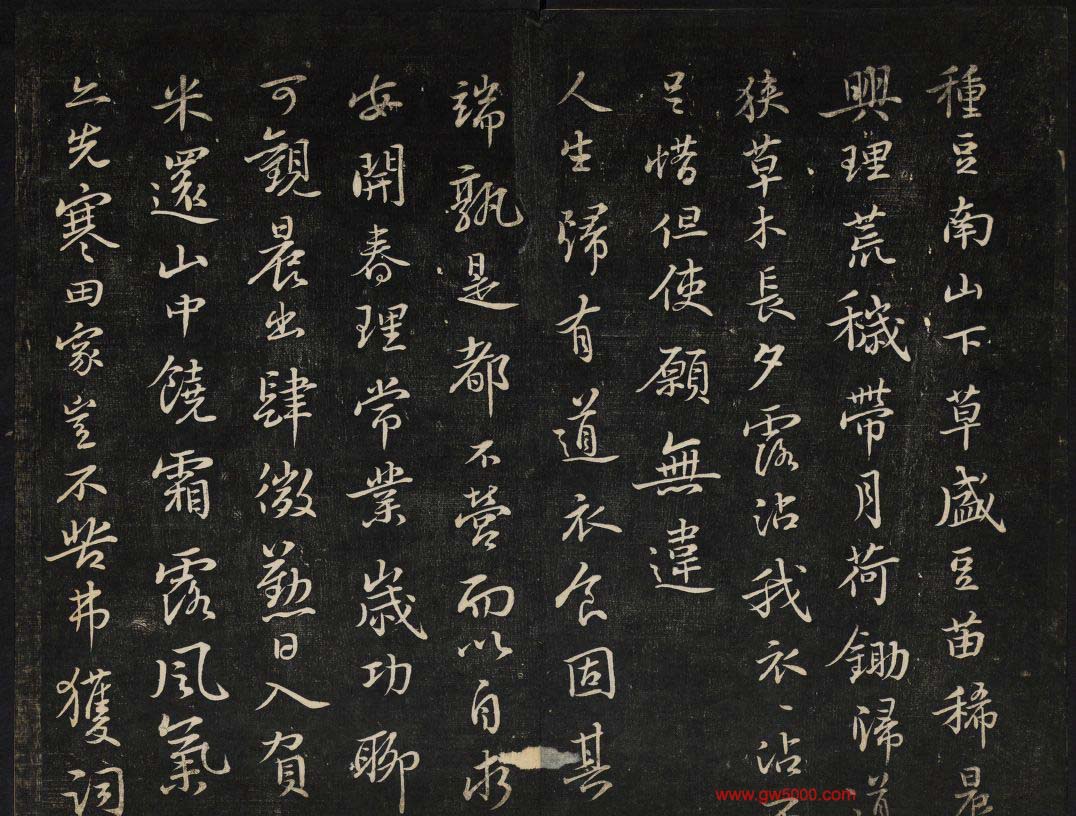 種豆南山下草盛豆苗稀晨
興理荒穢帶月荷鋤歸道
狹草木長夕露沾我衣〻沾不
足惜但使願無違
人生歸有道衣食固其
端孰是都不營而以自求
安開春理常業歲功聊
可觀晨出肆微勤日入負
米還山中饒霜露風氣
亦先寒田家豈不苦弗獲詞
www.gw5000.com